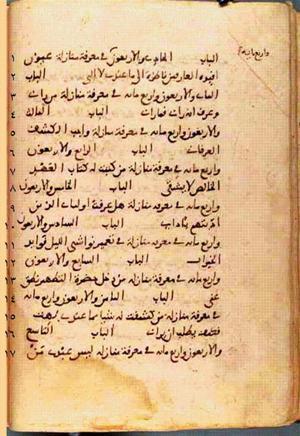 واربعمائة
١ الباب الحادي والاربعون في معرفة منازلة عيون
٢ افئدة العارفين ناظرة الى ما عندي لا الي الباب
٣ الثاني والاربعون واربع مائة في معرفة منازلة من رآني
٤ وعرف انه رآني فما رآني الباب الثالث
٥ والاربعون واربع مائة في معرفة منازلة واجب الكشف
٦ العرفاني الباب الرابع والاربعون
٧ واربع مائة في معرفة منازلة من كتبت له كتاب العهد
٨ الخالص لا يشقى الباب الخامس والاربعون
٩ واربع مائة في معرفة منازلة هل عرفت اوليائي الذين
١٠ ادبتهم بآدابي الباب السادس والاربعون
١١ واربع مائة في معرفة منازلة في تعمير نواشي الليل فوائد
١٢ الخيرات الباب السابع والاربعون
١٣ واربع مائة في معرفة منازلة من دخل حضرة التطهير نطق
١٤ عني الباب الثامن والاربعون واربع مائة
١٥ في معرفة منازلة من كشفت له شيئا مما عندي بهت
١٦ فكيف يطلب ان يراني الباب التاسع
١٧ والاربعون واربع مائة في معرفة منازلة ليس عبدي من